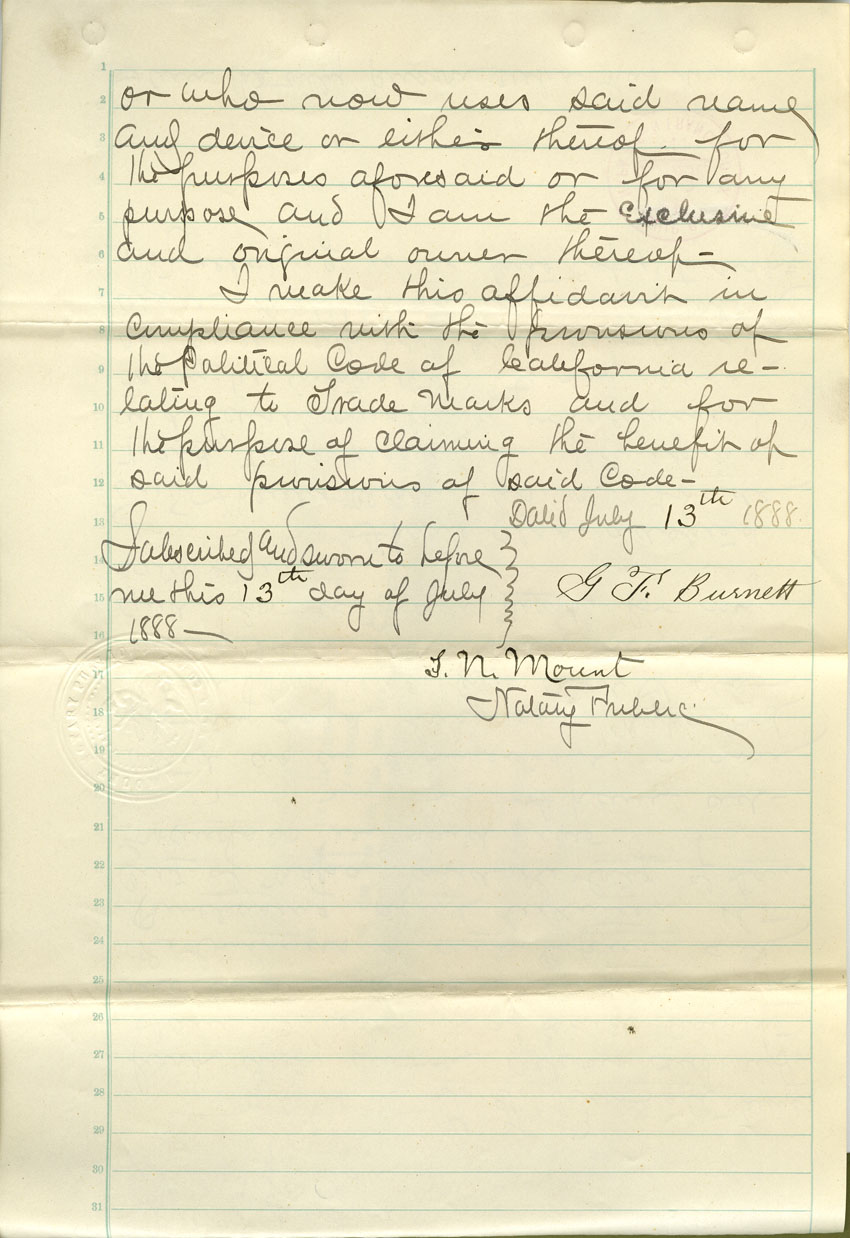 or who now uses said name
and device or either thereof for
the purposes aforesaid or for any
purpose, and I am the exclusive
and original owner thereof—
I make this affidavit in
compliance with the provisions of
the Political Code of California re-
lating to Trade Marks and for
the purpose of claiming the benefit of
said provisions of said Code—
Dated July 13th 1888.
Subscribed and sworn to before
me this 13th day of July
1888—
G F. Burnett
F. N. Mount
Notary Public
1
2
3
4
5
6
7
8
9
10
11
12
13
14
15
16
17
18
19
20
21
22
23
24
25
26
27
28
29
30
31